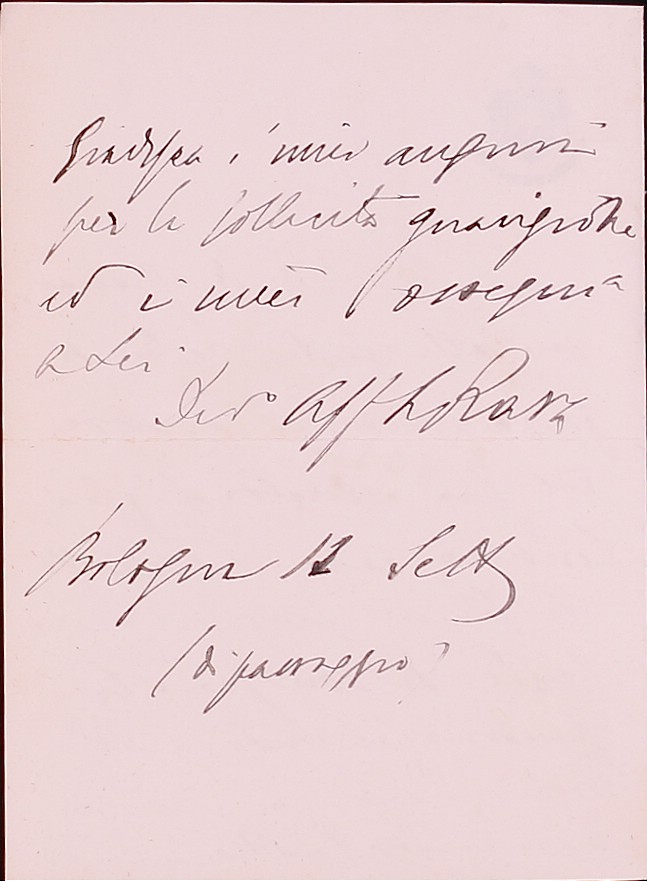 Gradisca i miei auguri
per la sollecita guarigione
ed i miei ossequi
a Lei
Dev° Aff L Rava
Bologna 12 Sett
(di passaggio)